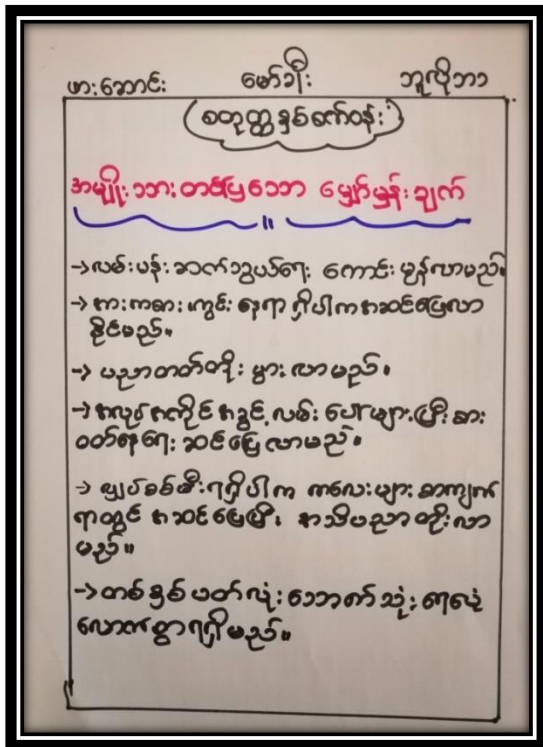 ဖားဆောင်း မော်ခြီး ဘူလိုဘာ
စတုတ္ထနှစ်စက်ဝန်း
အမျိုးသားတင်ပြသော မျှော်မှန်းချက်
"
→လမ်းပန်းဆက်သွယ်ရေး ကောင်းမွန်လာမည်။
→စားကစားကွင်းနေရာရှိပါကအဆင်ပြေလာ
နိုင်မည်။
→ ပညာတတ်တိုးပွားလာမည်။
→အလုပ်အကိုင်အခွင့်လမ်းပေါများပြီးစား
ဝတ်နေရေးဆင်ပြေလာမည်။
→ လျှပ်စစ်မီးရရှိပါက ကလေးများစာကျက်
ရာတွင် အဆင်ပြေပြီး အသိပညာတိုးလာ
မည်။
→တစ်နှစ်ပတ်လုံးသောက်သုံးရေရရှိ
လောက်စွာရရှိမည်။